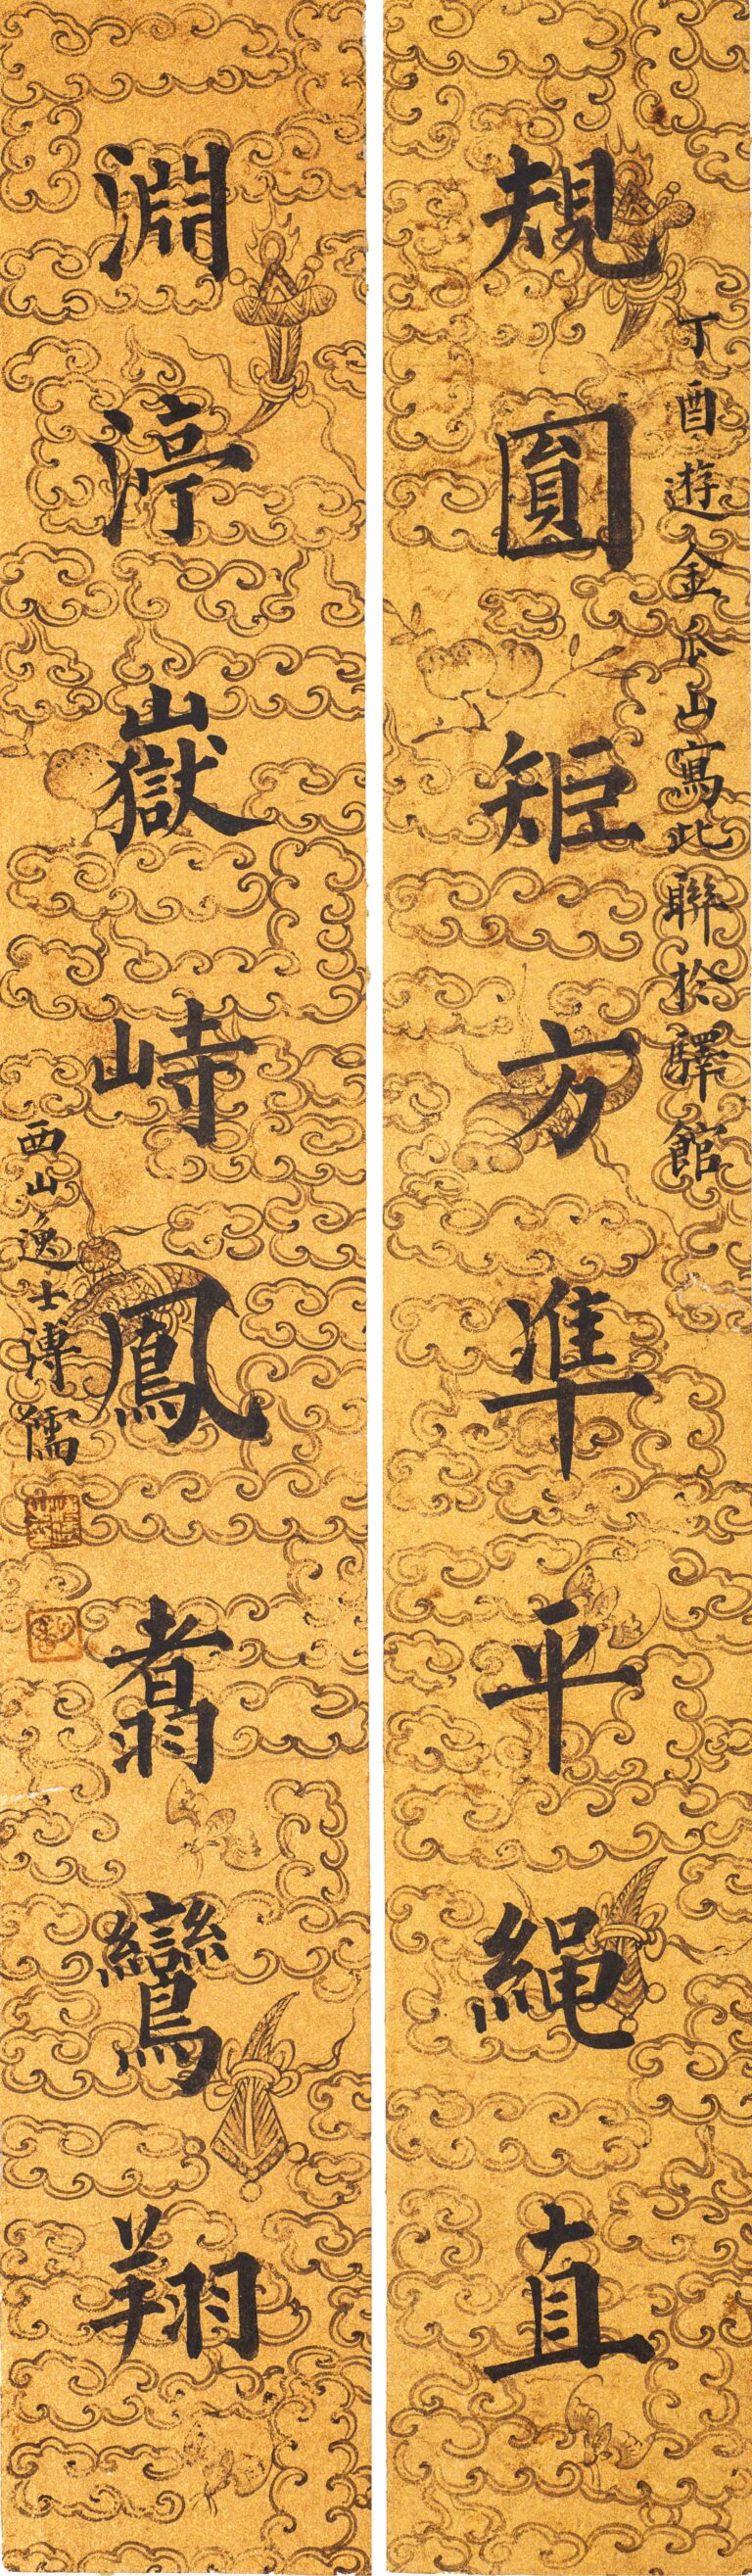 丁酉遊金瓜山寫此聯於驛館
規圓矩方準平繩直
淵渟嶽峙鳳翥鸞翔
西山逸士溥儒